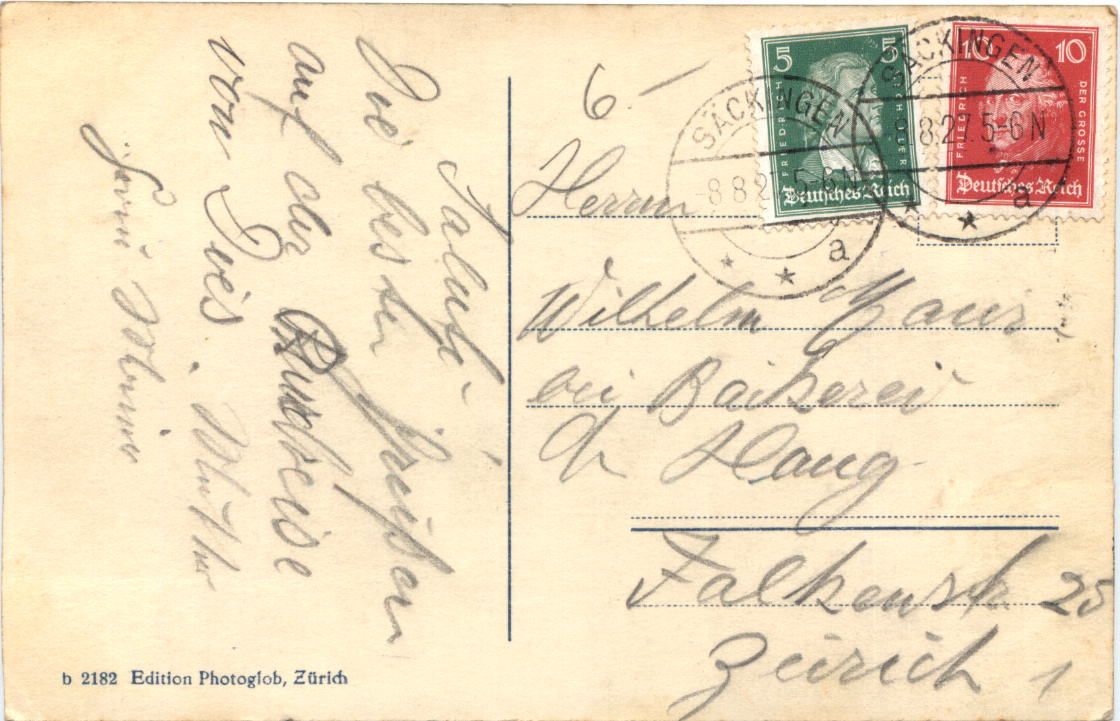 Salut!
Die besten
auf der Rundreise
von Ihre
6.-
5
5
FRIEDRICH SCHILLER
Deutsches Reich
10
10
FRIEDRICH DER GROSSE
Deutsches Reich
SÄCKINGEN
8.8.27.5-6N
a
SÄCKINGEN
8.8.27.5-6N
a
Herrn
Wilhelm
bei Bäckerei
Haug
Falkenstr 25
Zürich 1
b 2182 Edition Photoglob, Zürich